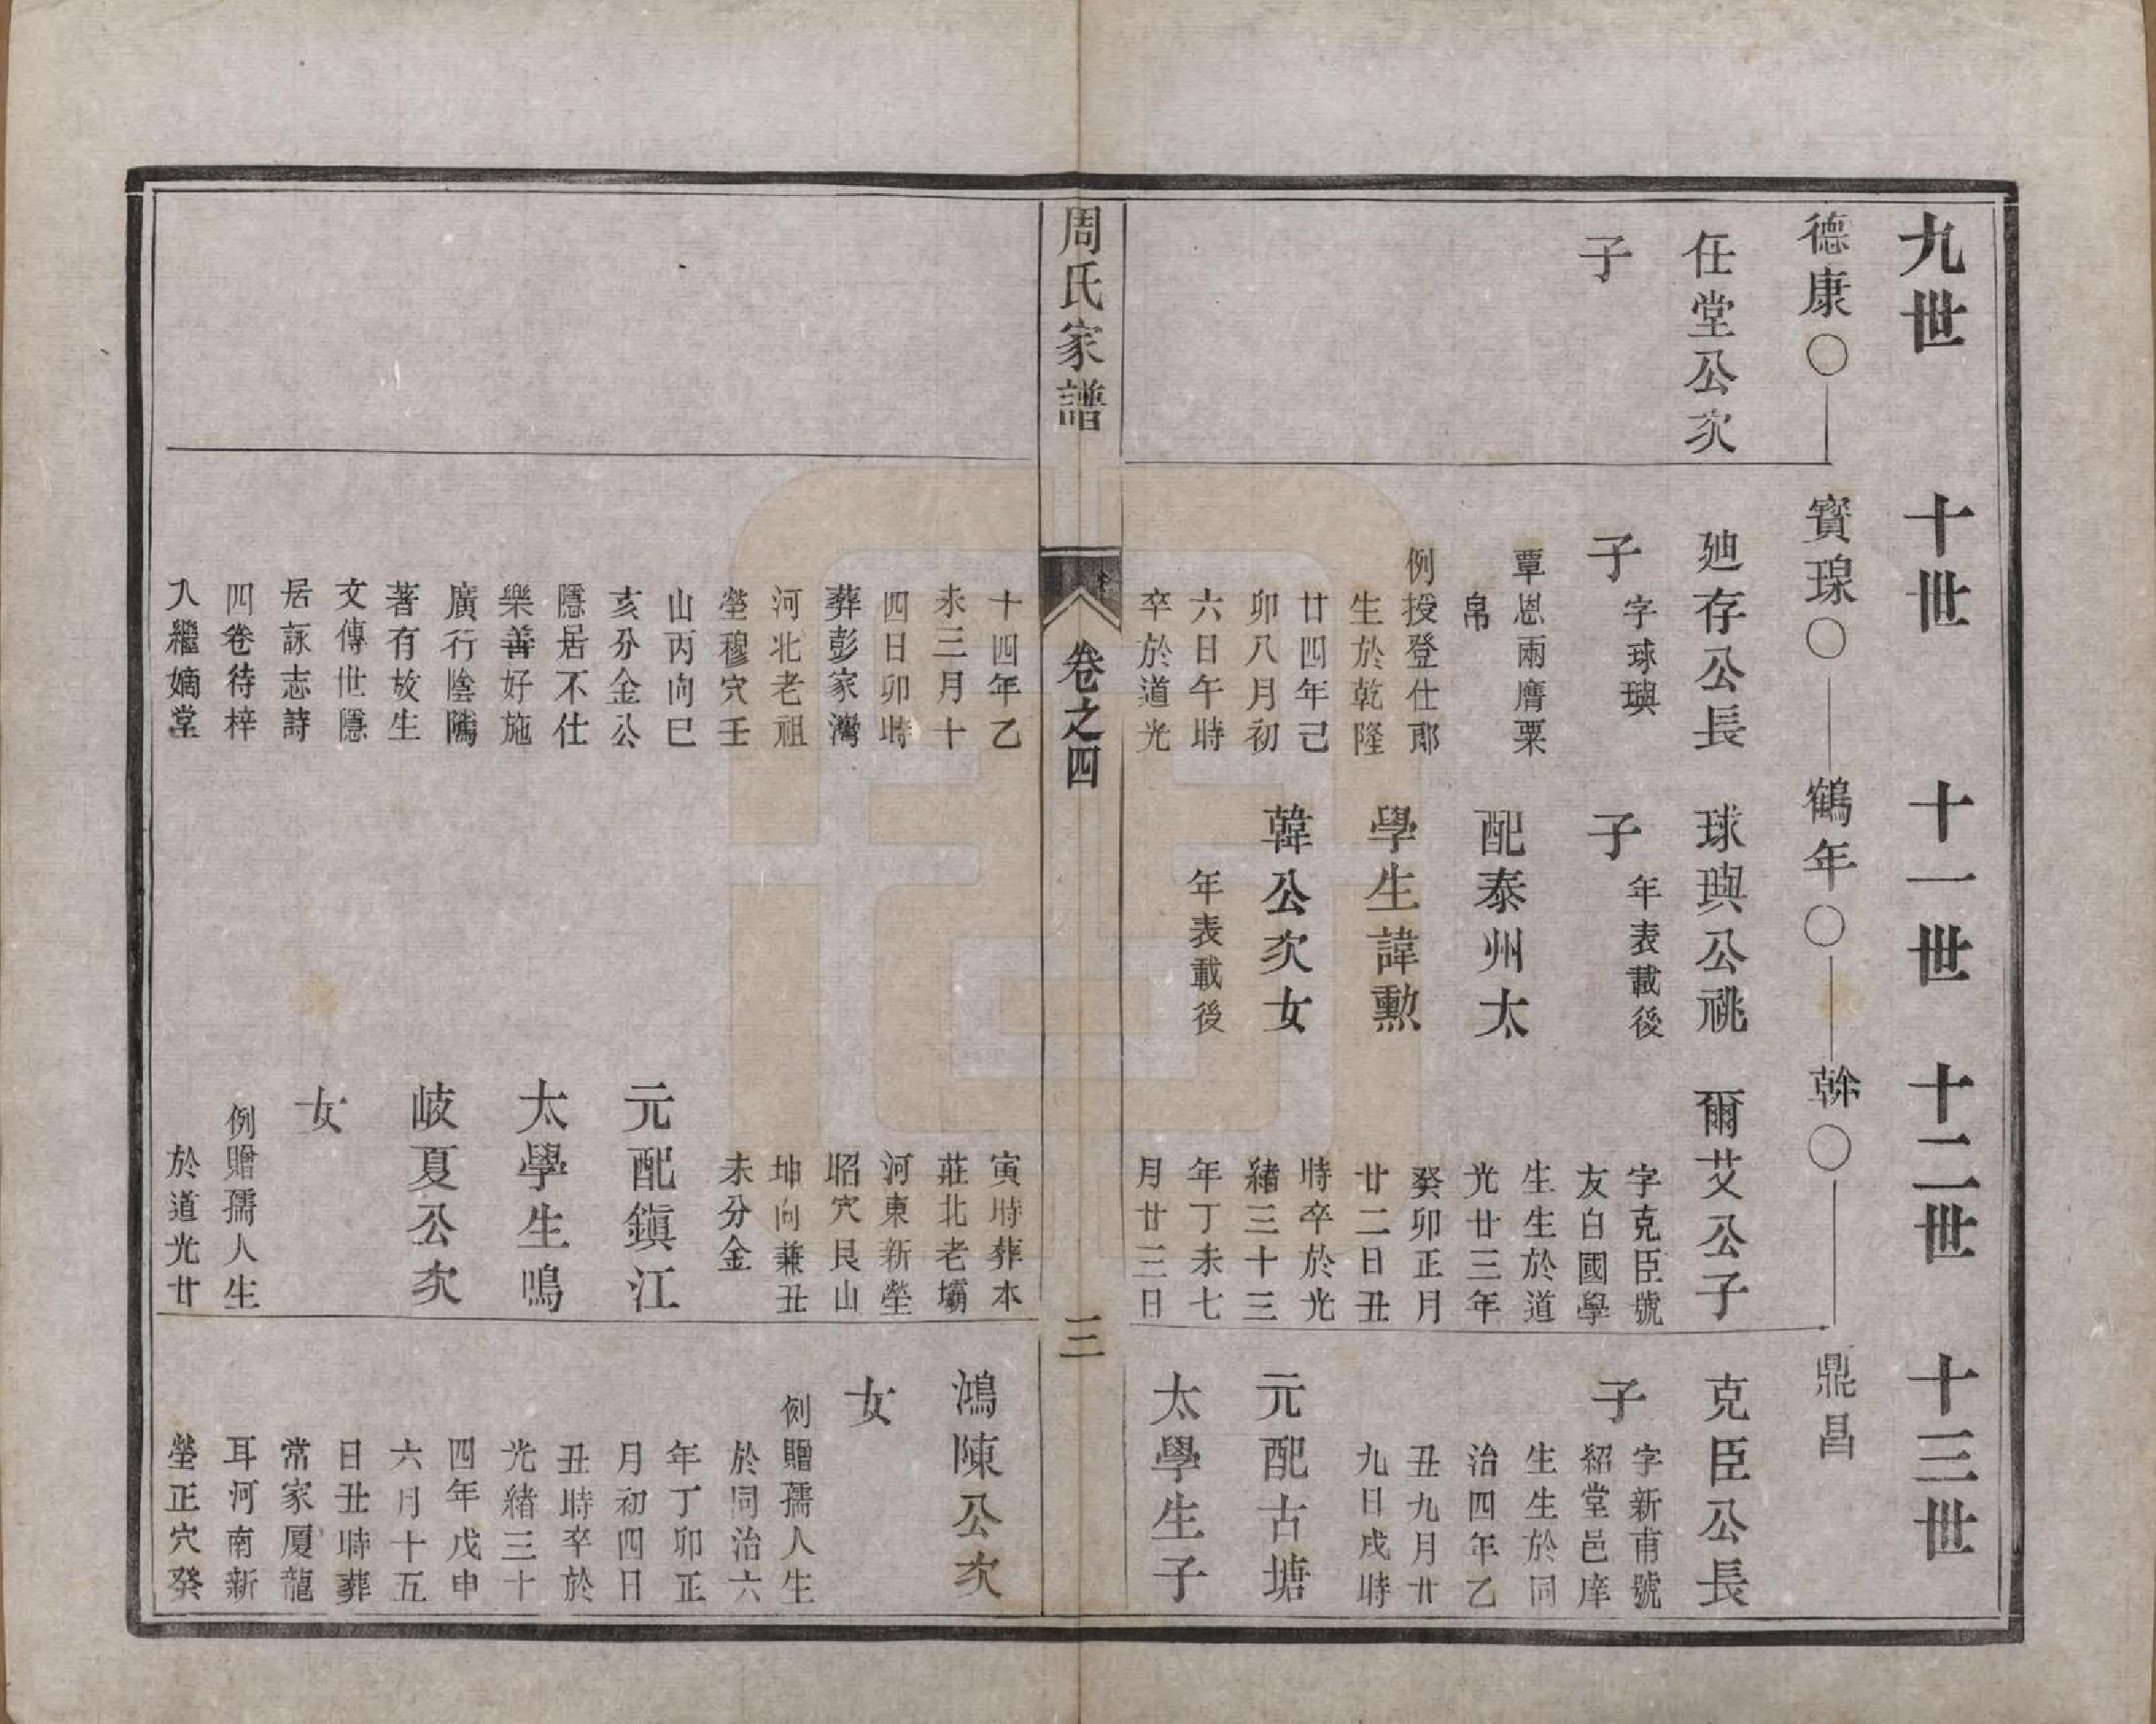 九世
十世
十一世
十二世
十三世
德康○
寶琝○
鶴年○
榦○
鼎昌
任堂公次
子
廸存公長
子
字球璵
覃恩兩膺粟
帛
例授登仕郎
生於乾隆
廿四年己
卯八月初
六日午時
卒於道光
球璵公祧
子
年表載後
配泰州太
學生諱勲
韓公次女
年表載後
爾艾公子
字克臣號
友白國學
生生於道
光廿三年
癸卯正月
廿二日丑
時卒於光
緒三十三
年丁未七
月廿三日
克臣公長
子
字新甫號
紹堂邑庠
生生於同
治四年乙
丑九月廿
九日戌時
元配古塘
太學生子
周氏家譜
卷之四
三
十四年乙
未三月十
四日卯時
葬彭家灣
河北老祖
塋穆穴壬
山丙向巳
亥分金公
隱居不仕
樂善好施
廣行陰隲
著有放生
文傳世隱
居詠志詩
四卷待梓
入繼嫡堂
寅時葬本
莊北老壩
河東新塋
昭穴艮山
坤向兼丑
未分金
元配鎭江
太學生鳴
岐夏公次
女
例贈孺人生
於道光廿
鴻陳公次
女
例贈孺人生
於同治六
年丁卯正
月初四日
丑時卒於
光緒三十
四年戊申
六月十五
日丑時葬
常家厦龍
耳河南新
塋正穴癸